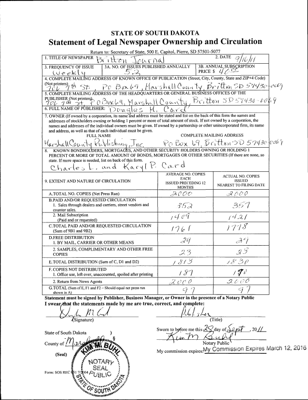 STATE OF SOUTH DAKOTA
Statement of Legal Newspaper Ownership and Circulation
Return to: Secretary of State, 500 E. Capitol, Pierre, SD 57501-5077
1. TITLE OF NEWSPAPER Britton Journal 2. DATE
3. FREQUENCY OF ISSUE Weekly 3A. NO. OF ISSUES PUBLISHED ANNUALLY 52 3B. ANNUAL SUBSCRIPTION PRICE $
4. COMPLETE MAILING ADDRESS OF KNOWN OFFICE OF PUBLICATION (Street, City, County, State and ZIP+4 Code) (Not printers)
PO Box 69, Marshall County, Britton SD 57430-0069
5. COMPLETE MAILING ADDRESS OF THE HEADQUARTERS OF GENERAL BUSINESS OFFICES OF THE PUBLISHER (Not printers)
PO Box 69, Marshall County, Britton SD 57430-0069
6. FULL NAME OF PUBLISHER: Douglas H. Card
7. OWNER (If owned by a corporation, its name and address must be stated and also immediately the names and addresses of stockholders owning or holding 1 percent or more of total amount of stock. If not owned by a corporation, the names and addresses of the individual owners must be given. If owned by a partnership or other unincorporated firm, its name and address, as well as that of each individual must be given.
FULL NAME COMPLETE MAILING ADDRESS
Marshall County Publishing, Inc. PO Box 69, Britton SD 57430-0069
8. KNOWN BONDHOLDERS, MORTGAGEES, AND OTHER SECURITY HOLDERS OWNING OR HOLDING 1 PERCENT OR MORE OF TOTAL AMOUNT OF BONDS, MORTGAGES OR OTHER SECURITIES (If there are none, so state. If more space is needed, list on back of this form)
Charles L. and Karyl P. Card
9. EXTENT AND NATURE OF CIRCULATION AVERAGE NO. COPIES EACH ISSUE DURING PRECEDING 12 MONTHS ACTUAL NO. COPIES ISSUED NEAREST TO FILING DATE
A. TOTAL NO. COPIES (Net Press Run) 2000 2000
B. PAID AND/OR REQUESTED CIRCULATION
1. Sales through dealers and carriers, street vendors and counter sales. 352 357
2. Mail Subscription (Paid and/or requested) 1409 1421
C. TOTAL PAID AND/OR REQUESTED CIRCULATION (Sum of 9B1 and 9B2) 1761 1778
D. FREE DISTRIBUTION
1. BY MAIL, CARRIER OR OTHER MEANS 29 27
2. SAMPLES, COMPLIMENTARY AND OTHER FREE COPIES 23 25
E. TOTAL DISTRIBUTION (Sum of C, D1 and D2) 1813 1830
F. COPIES NOT DISTRIBUTED
1. Office use, left over, unaccounted, spoiled after printing 187 170
2. Return from News Agents
G. TOTAL (Sum of E, F1 and F2 - Should equal net press run shown in A) 2000 2000
97 97
Statement must be signed by Publisher, Business Manager, or Owner in the presence of a Notary Public
I swear that the statements made by me are true, correct, and complete:
(Signature) (Title)
State of South Dakota
County of
(Seal)
Sworn to before me this day of Sept, 2011
Notary Public
My commission expires: My Commission Expires March 12, 2016
KIM M. BUHL
NOTARY PUBLIC
SEAL
SOUTH DAKOTA